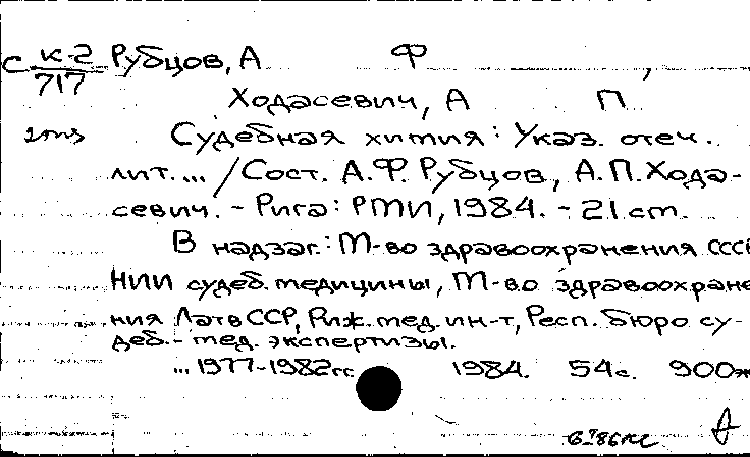 с К-2 Рубцов, А Ф
717
Ходасевич, А П
Судебная химия: Указ. отеч.
лит... / Сост. А.Ф. Рубцов, А.П. Хода-
севич. - Рига: РМИ, 1984. - 21 cm.
В надзаг.: М-во здравоохранения СССР
НИИ судеб. медицины, М-во здравоохране
ния Латв ССР, Риж. мед. ин-т, Респ. бюро су-
деб.-мед. экспертизы.
... 1977-1982гг. 1984. 54с. 900э